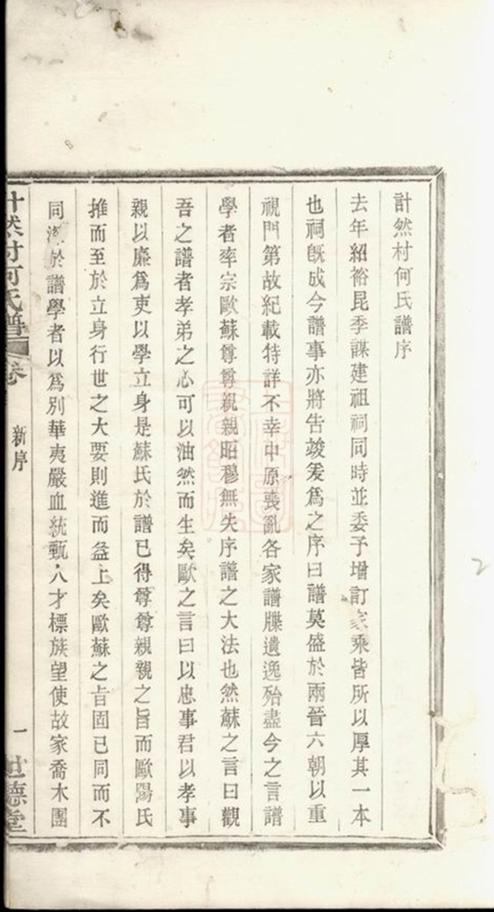 計然村何氏譜序
去年紹裕昆季謀建祖祠同時並委予增訂家乘皆所以厚其一本
也祠旣成今譜事亦將告竣爰爲之序曰譜莫盛於兩晉六朝以重
視門第故紀載特詳不幸中原喪亂各家譜牒遺逸殆盡今之言譜
學者率宗歐蘇尊尊親親昭穆無失序譜之大法也然蘇之言曰觀
吾之譜者孝弟之心可以油然而生矣歐之言曰以忠事君以孝事
親以廉爲吏以學立身是蘇氏於譜已得尊尊親親之旨而歐陽氏
推而至於立身行世之大要則進而益上矣歐蘇之旨固已同而不
同滙於譜學者以爲別華夷嚴血統甄人才標族望使故家喬木團
計然村何氏譜
卷
新序
一
世德堂